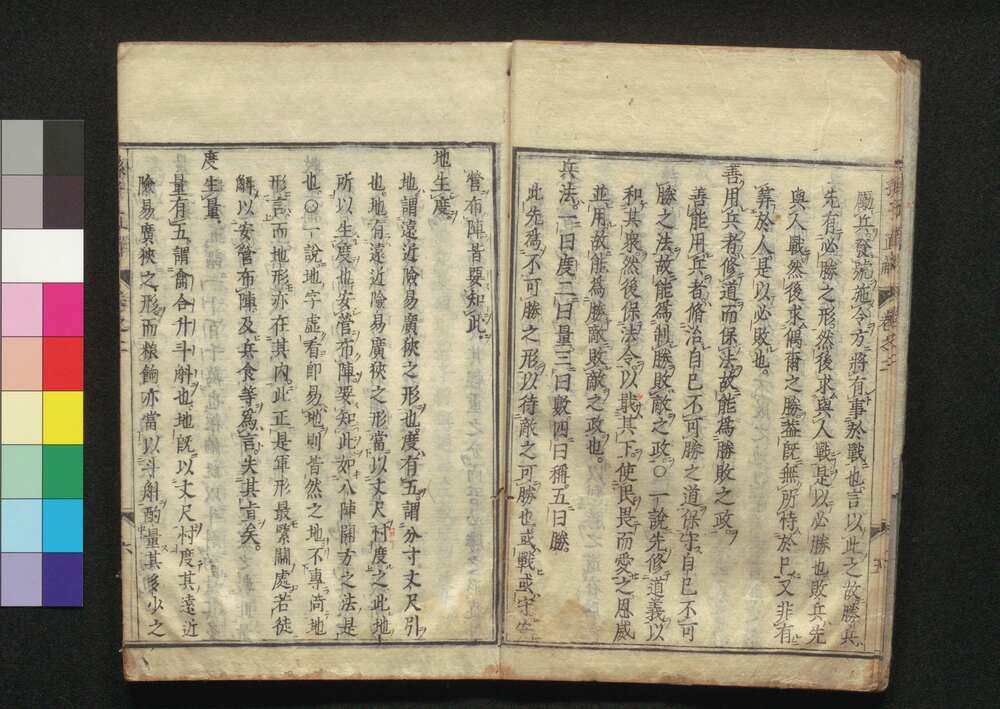 勵兵發施施令方將有事於戰也言以此之故勝兵
先有必勝之形然後求與人戰是以必勝也敗兵先
與人戰然後求偶爾之勝蓋既無所恃於已又非有
筭於人是以必敗也。
善用兵者修道而保法故能爲勝敗之政。
善能用兵者脩治自已不可勝之道保守自已不可
勝之法故能爲制勝敗敵之政○一說先修道義以
和其衆然後保法令以戢其下使民畏而愛之恩威
並用故能爲勝敵敗敵之政也。
兵法一曰度二曰量三曰數四曰稱五曰勝。
此先爲不可勝之形以待敵之可勝也或戰或守安
營布陣皆要知此
地生度
地謂遠近險易廣狹之形也度有五謂分寸丈尺引
也地有遠近險易廣狹之形當以丈尺忖度之此地
所以生度也安營布陣要知此如八陣闢方之法是
也○一說地字虛看即易地則皆然之地不專倚地
形言而地形亦在其內此正是軍形最緊關處若徒
解以安營布陣及兵食等爲言失其旨矣。
度生量
量有五謂龠合升斗斛也地既以丈尺忖度其遠近
險易廣狹之形而糧餉亦當以斗斛酌量其多少之